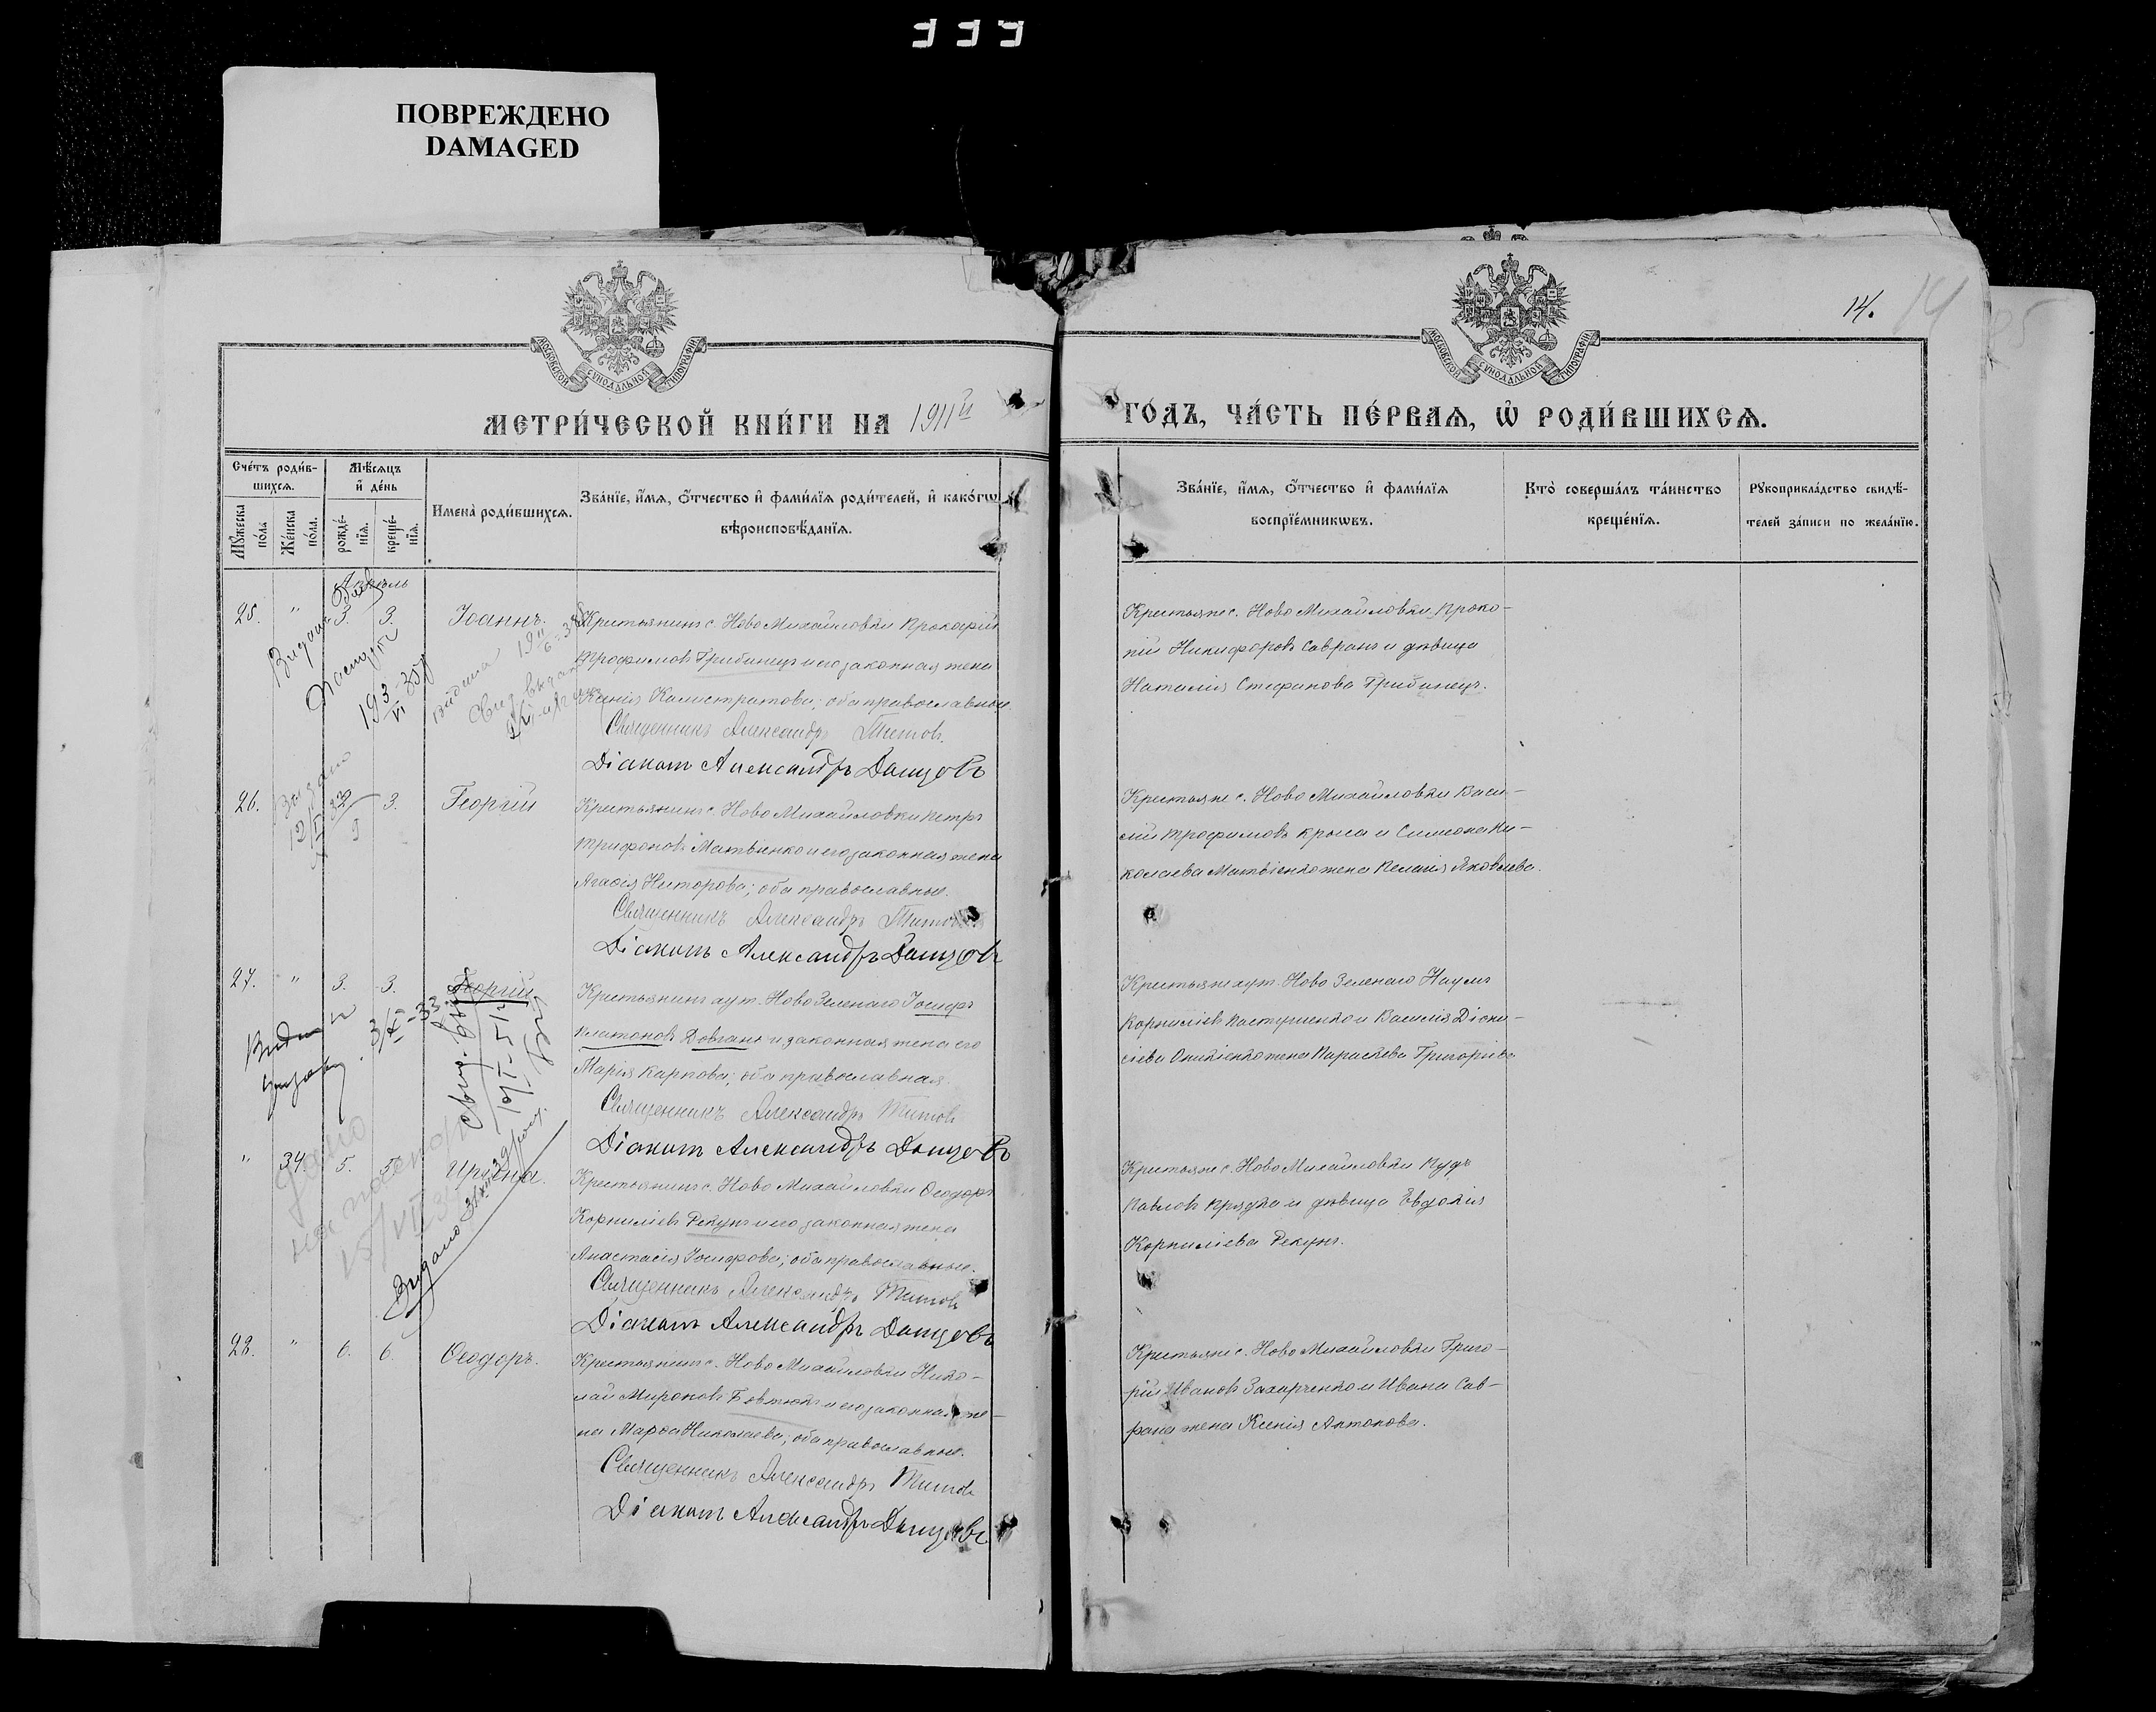 ПОВРЕЖДЕНО
DAMAGED
14.
14
МОСКОВСКОЙ СѴНОДАЛЬНОЙ ТИПОГРАФІИ
МОСКОВСКОЙ СѴНОДАЛЬНОЙ ТИПОГРАФІИ
МЕТРИ́ЧЕСКОЙ КНИ́ГИ НА 1911й
ГО́ДЪ, ЧА́СТЬ ПЕ́РВАѦ, Ѡ҆ РОДИ́ВШИХСѦ.
Сче́тъ роди́в-
шихся.
Мѣ́сяцъ
и҆ де́нь
Мꙋ́жеска по́ла
Же́нска по́ла.
рожде́-
нїѧ.
креще́-
нїѧ.
Имена̀ роди́вшихся.
Зва́нїе, и҆́мѧ, ѻ҆́тчество и҆ фами́лїѧ роди́телей, и҆ како́гѡ
вѣроисповѣ́данїѧ.
Зва́нїе, и҆́мѧ, ѻ҆́тчество и҆ фами́лїѧ
воспрїе́мникѡвъ.
Кто̀ соверша́лъ та́инство
креще́нїѧ.
Рꙋкоприкла́дство свидѣ́-
телей за́писи по жела́нїю.
Апрѣль
25. " 3. 3. Іоаннъ.
Крестьянинъ с. Ново Михайловки Прокофій
Трофимовъ Грибинецъ и его законная жена
Ксенія Калистратова; оба православные.
Священникъ Александръ Титовъ.
Діаконъ Александръ Донцовъ
Крестьяне с. Ново Михайловки Проко-
пій Никифоровъ Савранъ и дѣвица
Наталія Стефанова Грибинецъ.
26. 3. Георгій
Крестьянинъ с. Ново Михайловки Петръ
Трифоновъ Матвіенко и его законная жена
Агаѳія Несторова; оба православные.
Священникъ Александръ Титовъ
Діаконъ Александръ Донцовъ
Крестьяне с. Ново Михайловки Васи-
лій Трофимовъ Крыса и Симеона Ни-
колаева Матвіенко жена Пелагія Яковлева.
27. " 3. 3. Георгій
Крестьянинъ хут. Ново Зеленаго Іосифъ
Платоновъ Довгань и законная жена его
Марія Карпова; оба православная.
Священникъ Александръ Титовъ
Діаконъ Александръ Донцовъ
Крестьяне хут. Ново Зеленаго Наумъ
Корниліевъ Пастушенко и Василія Діони-
сіева Оникіенко жена Параскева Григоріева
" 34. 5. 5. Ирина.
Крестьянинъ с. Ново Михайловки Ѳеодоръ
Корниліевъ Рекунъ и его законная жена
Анастасія Іосифова; оба православные.
Священникъ Александръ Титовъ
Діаконъ Александръ Донцовъ
Крестьяне с. Ново Михайловки Іудъ
Павловъ Прядка и дѣвица Евдокія
Корниліева Рекунъ.
28. " 6. 6. Ѳеодоръ.
Крестьянинъ с. Ново Михайловки Нико-
лай Мироновъ Бовтюкъ и его законная же-
на Марѳа Николаева; оба православные.
Священникъ Александръ Титовъ
Діаконъ Александръ Донцовъ
Крестьяне с. Ново Михайловки Григо-
рій Ивановъ Захарченко и Ивана Сав-
рана жена Ксенія Антонова.